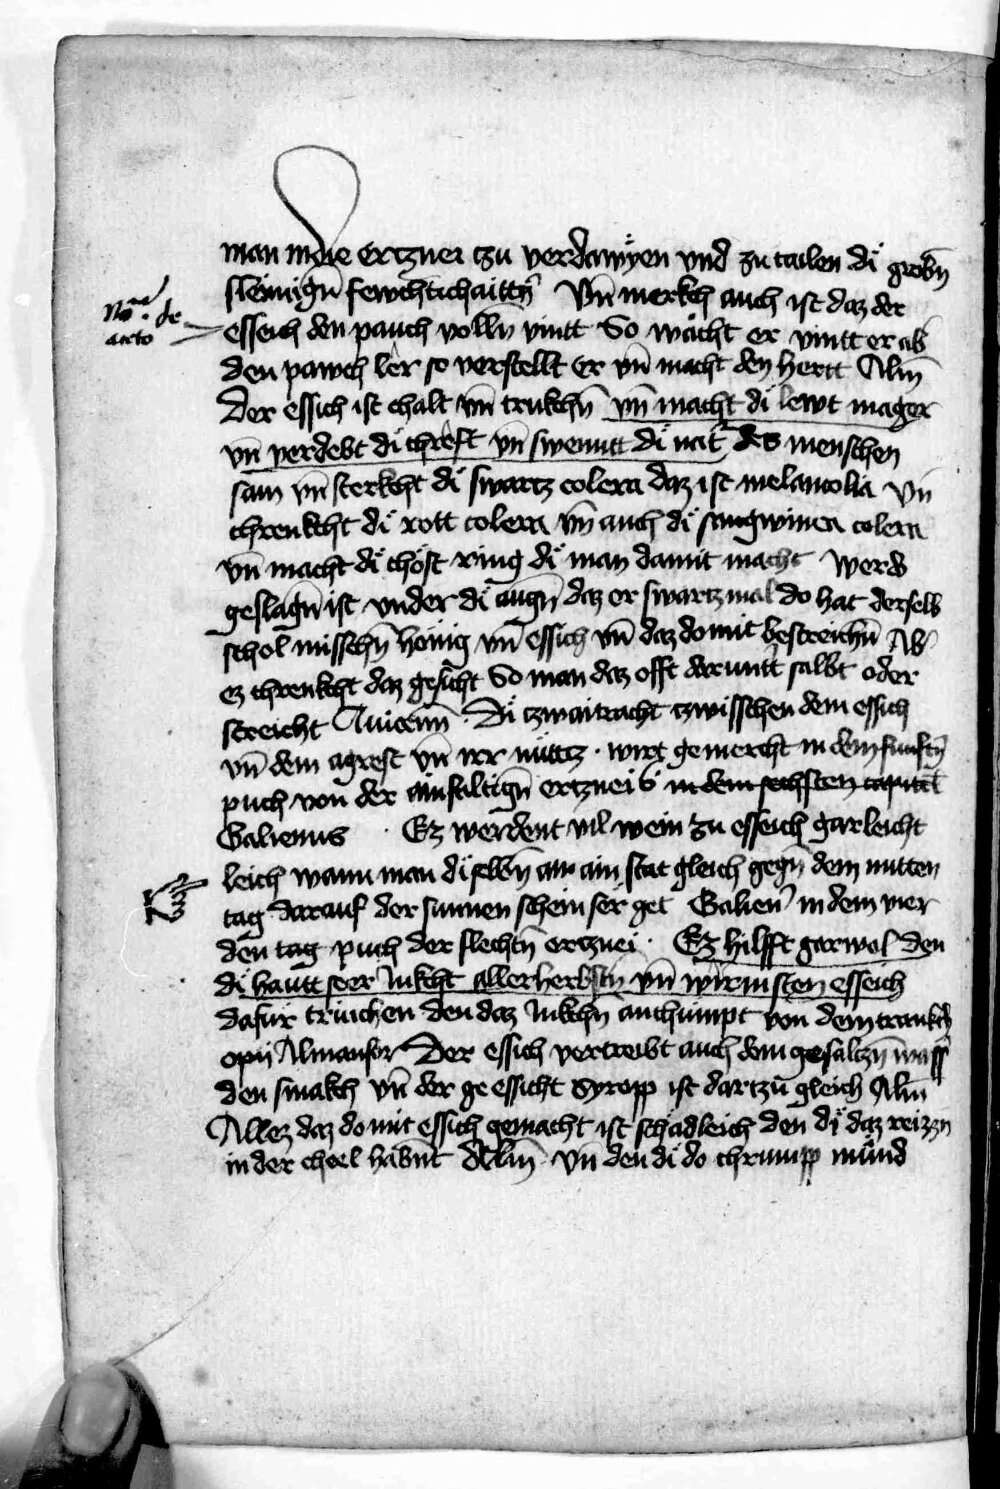 man in die ertznei tzu verdawyen vnd zu tailen di grobn̄
sleimign̄ fewchtichaittn̄ Vn̄ merkch auch ist daz der
No̅ᵃ de
aceto
esseich den pauch volln vintt So wacht er vintt er ab
den pawch ler so verstellt er vn̄ macht den hertt Alm̄
Der essich ist chalt vn̄ trukchn̄ vn̄ macht di lewt mager
vn̄ verdebt di chreft vn̄ swenntt di nat des menschen
sam vn̄ sterkcht di swartz colera daz ist melancolia vn̄
chrenkcht di rott colera vn̄ auch di sangwinea colera
vn̄ macht di chost ring di man damit macht Werd
geslagn̄ ist vnder di augn̄ daz er swartz mal do hat derselb
schol misschn̄ honig vn̄ essich vn̄ daz domit bestreichn̄ Ab
ez chrenkcht daz gesicht So man daz offt daruntt salbt oder
streicht Auicenn̄ Di tzwaitracht tzwisschen dem essich
vn̄ dem agrest vn̄ irr nuttz · wirt gemercht in dem funftn̄
puch von der ainfaltign̄ ertznei s in dem sechsten capittel
Galienus · Ez werdent vil wein zu esseich gar leicht
leich wann man di selbn̄ an ain stat gleich gegn̄ dem mitten
tag darauf der sunnen schein ser get Galien in dem vier
den tag puch der slechtn̄ ertznei · Ez hilfft garwol den
di hautt seer Jukcht allerherbstn̄ vn̄ wirmsten esseich
dafur trinchen den daz Jukchn̄ anchumpt von dem trankch
opij Almansor Der essich vertreibt auch dem gesaltzn̄ wass
den smakch vn̄ der ge essicht Syropp ist dartzu gleich Alm̄
Allez daz do mit essich gemacht ist schadleich den di daz reizzn
in der cheel habnt Alm̄ vn̄ den di do chrumpp mund